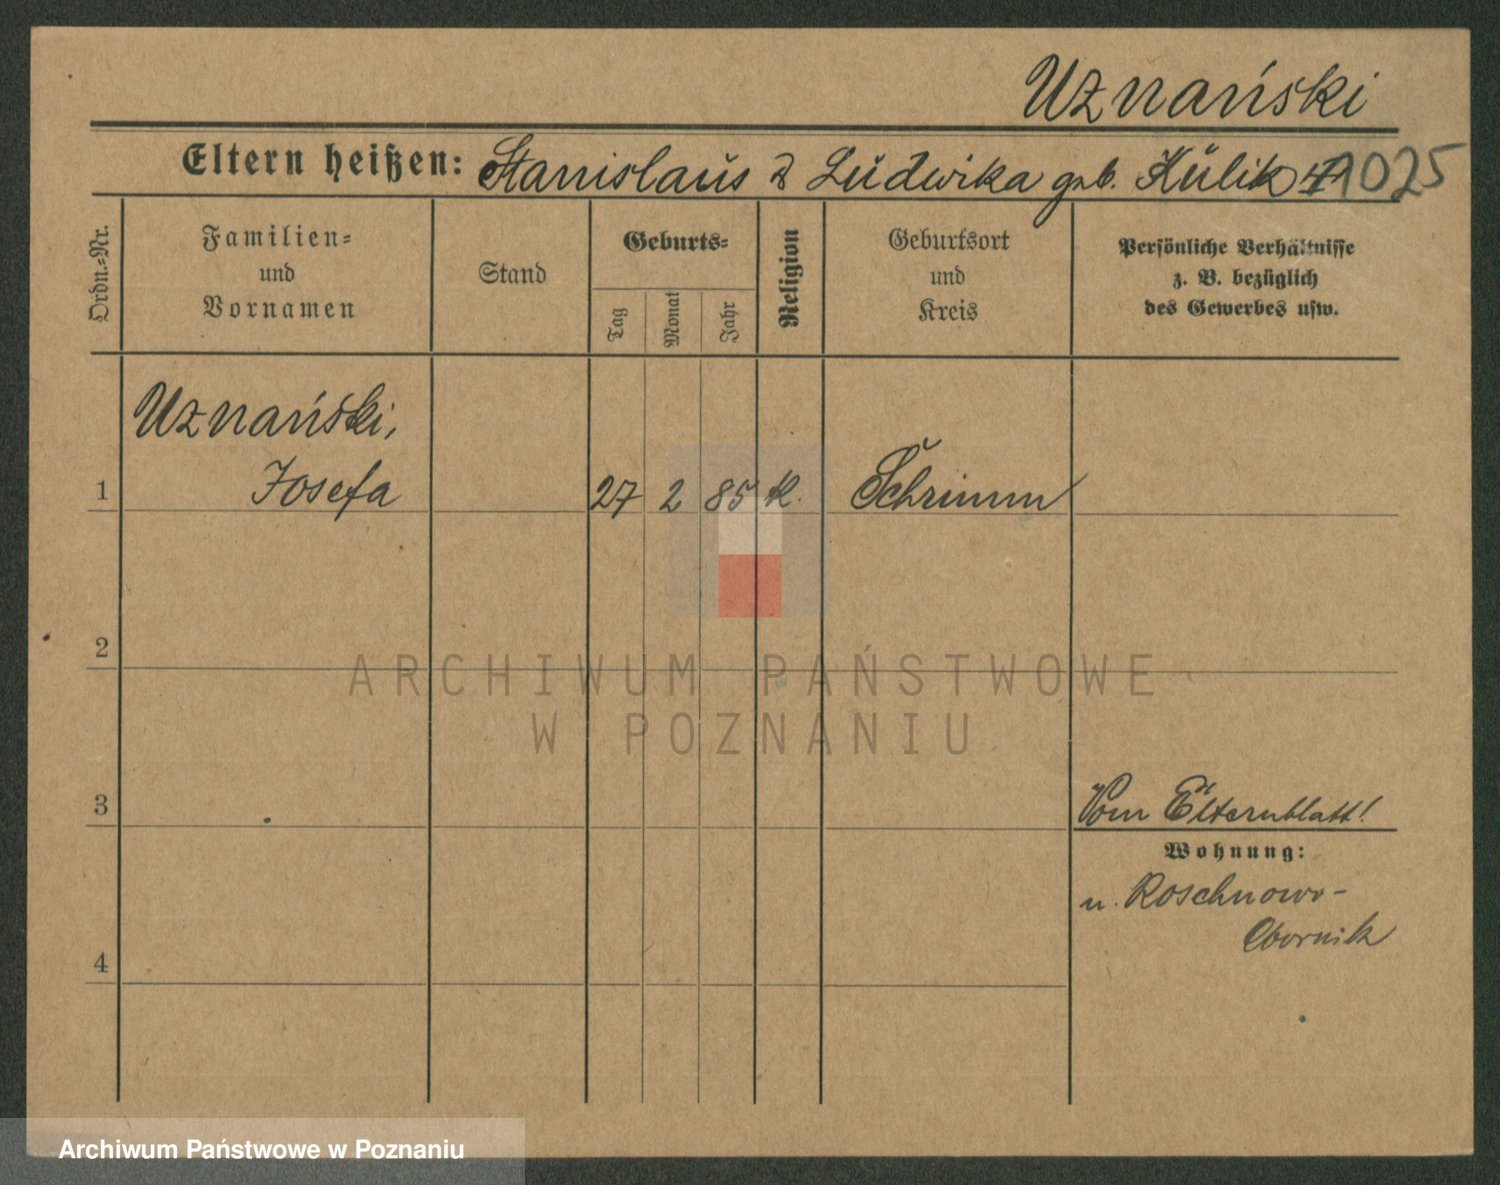 Uznański
Eltern heißen: Stanislaus & Ludwika geb. Kulik
1025
Ordn.-Nr.
Familien-
und
Vornamen
Stand
Geburts-
Tag
Monat
Jahr
Religion
Geburtsort
und
Kreis
Persönliche Verhältnisse
z. B. bezüglich
des Gewerbes usw.
Uznański,
1 Josefa 27 2 85 K. Schrimm
2
ARCHIWUM PAŃSTWOWE
W POZNANIU
3 Vom Elternblatt!
Wohnung:
n. Roschnowo-
Obornik
4
Archiwum Państwowe w Poznaniu